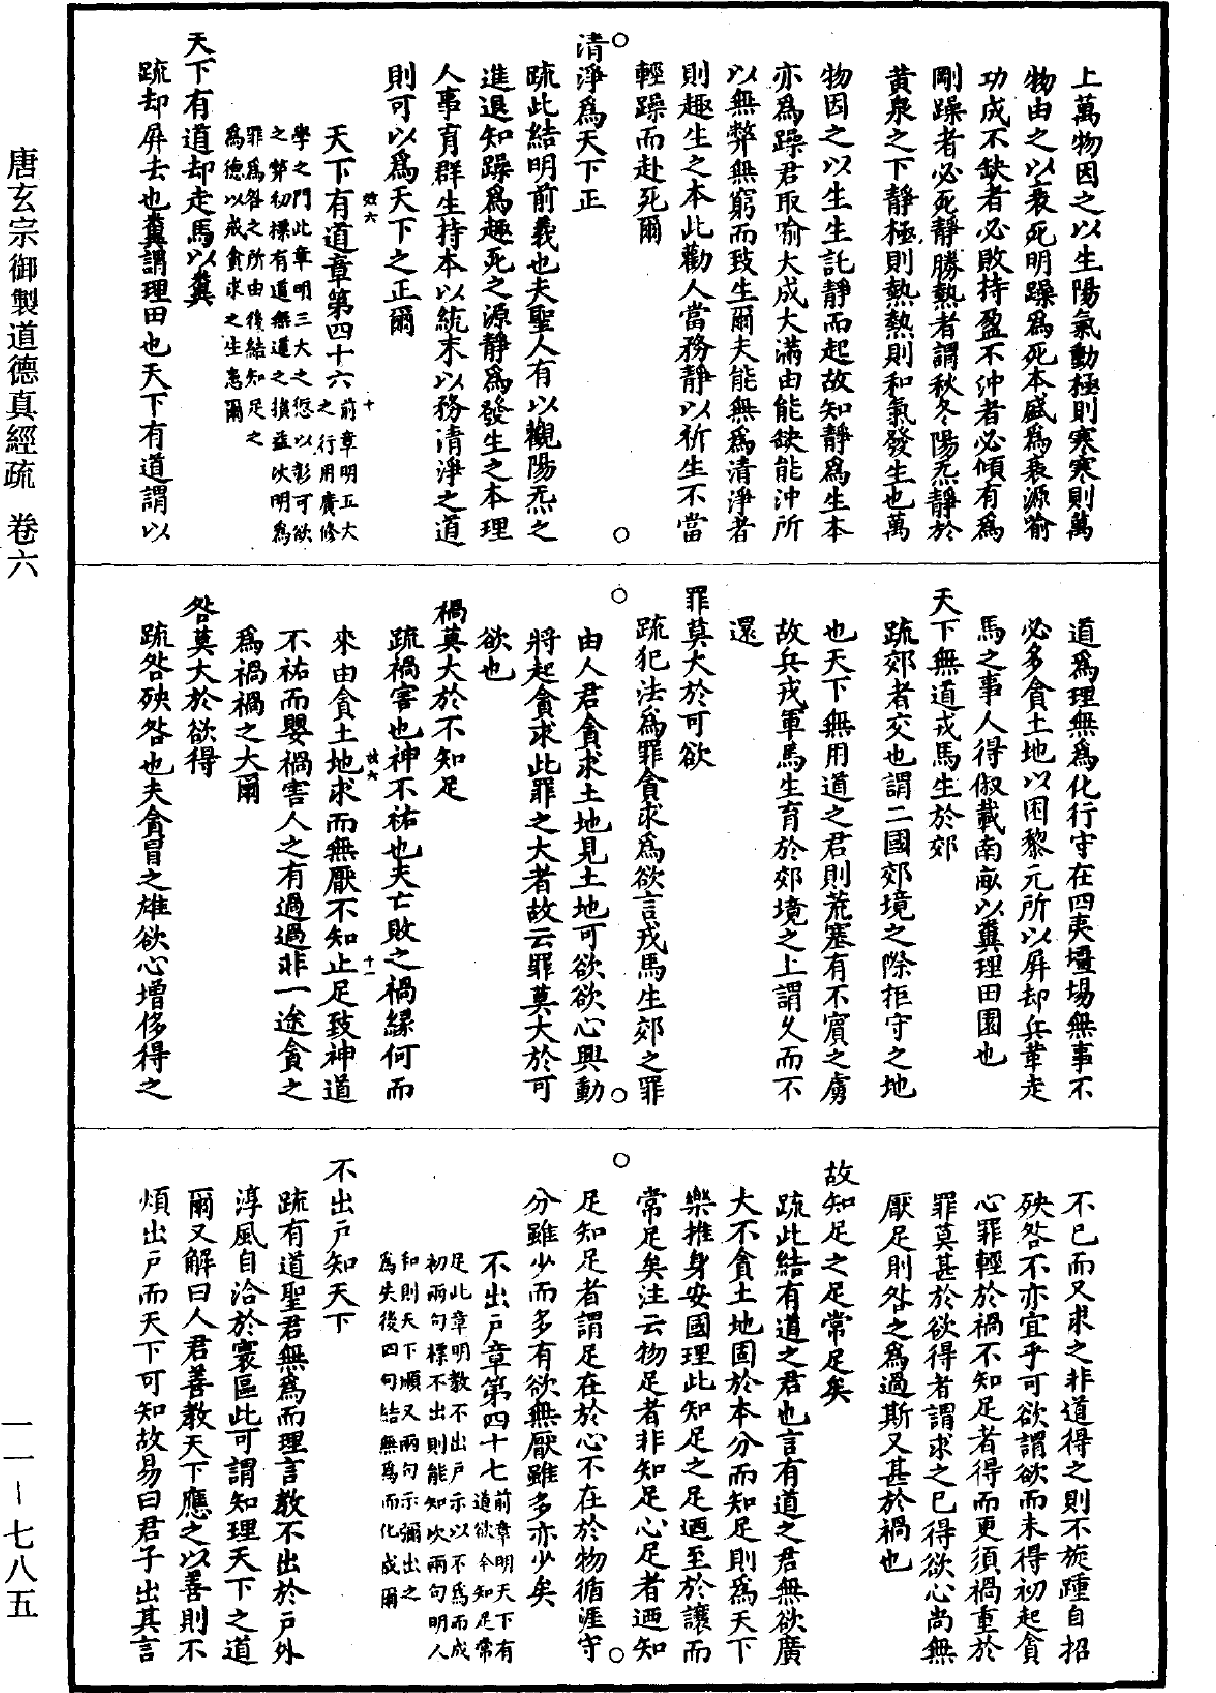 上萬物因之以生陽氣動極則寒寒則萬
物由之以衰死明躁為死本盛為衰源喻
功成不缺者必敗持盈不沖者必傾有為
剛躁者必死靜勝熱者謂秋冬陽炁靜於
黃泉之下靜極則熱熱則和氣發生也萬
物因之以生生託靜而起故知靜為生本
亦為躁君取喻大成大滿由能缺能沖所
以無弊無窮而致生爾夫能無為清淨者
則趣生之本此勸人當務靜以祈生不當
輕躁而赴死爾
清淨為天下正
疏此結明前義也夫聖人有以觀陽炁之
進退知躁為趣死之源靜為發生之本理
人事育群生持本以統末以務清淨之道
則可以為天下之正爾
天下有道章第四十六前章明五大
之行用廣修
學之門此章明三大之愆以彰可欲
之弊初標有道無道之損益次明為
罪為咎之所由後結知足之
為德以戒貪求之生患爾
天下有道却走馬以糞
疏却屏去也糞謂理田也天下有道謂以
道為理無為化行守在四夷壃場無事不
必多貪土地以困黎元所以屏却兵革走
馬之事人得俶載南畝以糞理田園也
天下無道戎馬生於郊
疏郊者交也謂二國郊境之際拒守之地
也天下無用道之君則荒塞有不賓之虜
故兵戎軍馬生育於郊境之上謂久而不
還
罪莫大於可欲
疏犯法為罪貪求為欲言戎馬生郊之罪
由人君貪求土地見土地可欲欲心興動
將起貪求此罪之大者故云罪莫大於可
欲也
禍莫大於不知足
疏禍害也神不祐也夫亡敗之禍緣何而
來由貪土地求而無厭不知止足致神道
不祐而嬰禍害人之有過過非一途貪之
為禍禍之大爾
咎莫大於欲得
疏咎殃咎也夫貪冒之雄欲心增侈得之
不已而又求之非道得之則不旋踵自招
殃咎不亦宜乎可欲謂欲而未得初起貪
心罪輕於禍不知足者得而更須禍重於
罪莫甚於欲得者謂求之已得欲心尚無
厭足則咎之為過斯又甚於禍也
故知足之足常足矣
疏此結有道之君也言有道之君無欲廣
大不貪土地固於本分而知足則為天下
樂推身安國理此知足之足迺至於讓而
常足矣注云物足者非知足心足者迺知
足知足者謂足在於心不在於物循涯守
分雖少而多有欲無厭雖多亦少矣
不出戶章第四十七前章明天下有
道欲令知足常
足此章明教不出戶示以不為而成
初兩句標不出則能知次兩句明人
和則天下順又兩句示彌出之
為失後四句結無為而化成爾
不出戶知天下
疏有道聖君無為而理言教不出於戶外
淳風自洽於寰區此可謂知理天下之道
爾又解曰人君善教天下應之以善則不
煩出戶而天下可知故易曰君子出其言
唐玄宗御製道德真經疏 卷六
一一－七八五